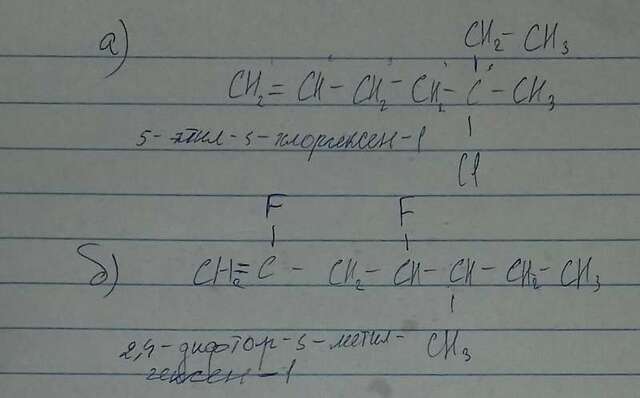 а) CH₂ - CH₃
CH₂ = CH - CH₂ - CH₂ - C - CH₃
5 - этил - 5 - хлоргексен - 1
Cl
F F
б) CH₂ = C - CH₂ - CH - CH - CH₂ - CH₃
2,4 - дифтор - 5 - метил - CH₃
гексен - 1